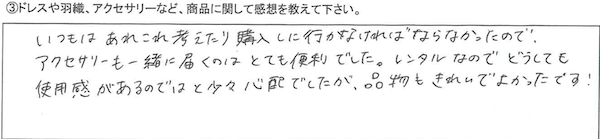 ③ドレスや羽織、アクセサリーなど、商品に関して感想を教えて下さい。
いつもは あれこれ考えたり購入しに行かなければならなかったので、
アクセサリーも一緒に届くのは とても便利でした。レンタルなので どうしても
使用感があるのではと少々心配でしたが、品物もきれいでよかったです！